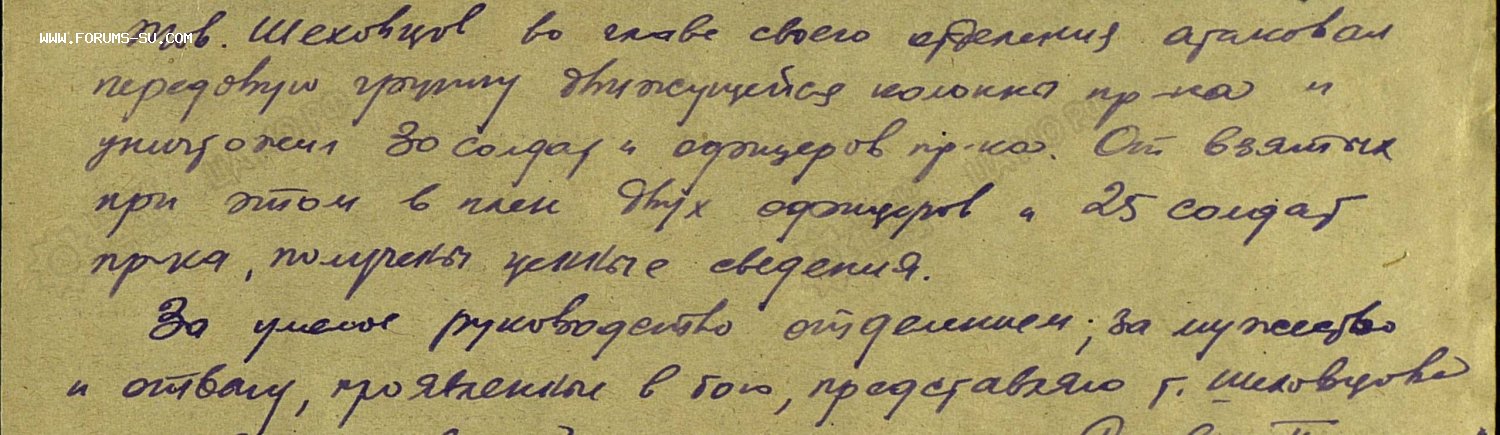 Тов. Шеховцов во главе своего отделения атаковал
WWW.FORUMS-SU.COM
передовую группу движущейся колонны пр-ка и
уничтожил 30 солдат и офицеров пр-ка. От взятых
при этом в плен двух офицеров и 25 солдат
пр-ка, получены ценные сведения.
За умелое руководство отделением; за мужество
и отвагу, проявленные в бою, представляю т. Шеховцова